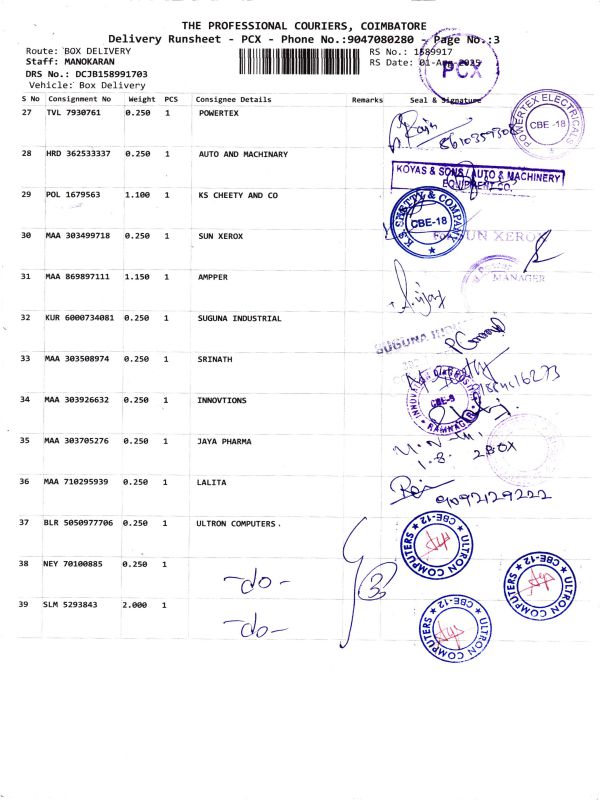 THE PROFESSIONAL COURIERS, COIMBATORE
Delivery Runsheet - PCX - Phone No.:9047080280 - Page No.:3
Route: BOX DELIVERY RS No.: 1589917
Staff: MANOKARAN RS Date: 01-Aug-2025
DRS No.: DCJB158991703
Vehicle: Box Delivery
PCX
S No Consignment No Weight PCS Consignee Details Remarks Seal & Signature
27 TVL 7930761 0.250 1 POWERTEX
POWERTEX ELECTRICALS CBE-18
28 HRD 362533337 0.250 1 AUTO AND MACHINARY
KOYAS & SONS AUTO & MACHINERY
EQUIPMENT CO.
29 POL 1679563 1.100 1 KS CHEETY AND CO
K S SHETTY & COMPANY CBE-18
30 MAA 303499718 0.250 1 SUN XEROX
For SUN XEROX
MANAGER
31 MAA 869897111 1.150 1 AMPPER
32 KUR 6000734081 0.250 1 SUGUNA INDUSTRIAL
SUGUNA
33 MAA 303508974 0.250 1 SRINATH
34 MAA 303926632 0.250 1 INNOVTIONS
CBE-9 RAMNAGAR
35 MAA 303705276 0.250 1 JAYA PHARMA
1.8. 2 BOX
36 MAA 710295939 0.250 1 LALITA
9092129222
37 BLR 5050977706 0.250 1 ULTRON COMPUTERS.
ULTRON COMPUTERS CBE-12
38 NEY 70100885 0.250 1 -do- 3
ULTRON COMPUTERS CBE-12
39 SLM 5293843 2.000 1 -do-
ULTRON COMPUTERS CBE-12